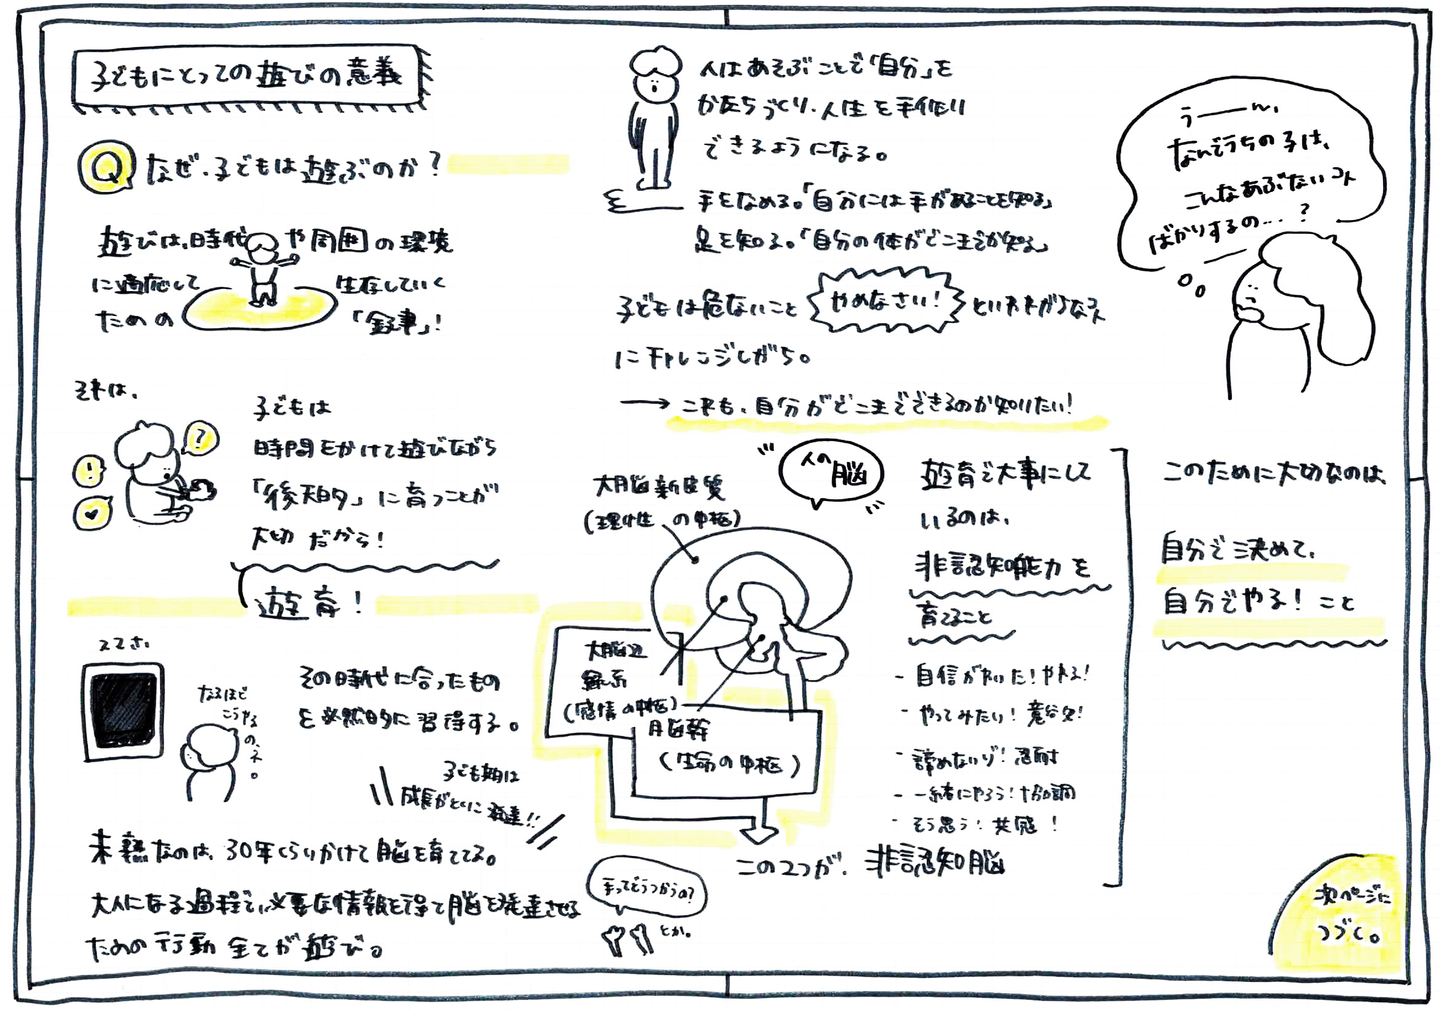 子どもにとっての遊びの意義
Q なぜ、子どもは遊ぶのか?
遊びは、時代や周囲の環境
に適応して生存していく
ための「錬事」!
それは、
?
!
子どもは
時間をかけて遊びながら
「後天的」に育つことが
大切だから!
遊育!
ココでは
なるほど
こうやる
の、ネ。
その時代に合ったもの
を必然的に習得する。
子ども期は
成長がとくに発達!!
未熟なのは、30年くらいかけて脳を育ててる。
大人になる過程で、必要な情報を得て脳を発達させる
ための行動全てが遊び。
手ってどうつかうの?
とか。
人はあそぶことで「自分」を
かたちづくり、人生を手作り
できるようになる。
手をなめる。「自分には手があることを知る」
足を知る。「自分の体がどこまでか知る」
子どもは危ないこと やめなさい! といわれがちなコト
にチャレンジしがち。
→ これも、自分がどこまでできるのか知りたい!
人の脳
大脳新皮質
(理性の中枢)
大脳辺
縁系
(感情の中枢)
脳幹
(生命の中枢)
この2つが、非認知脳
遊育で大事にして
いるのは、
非認知能力を
育てること
- 自信がわいた!やれる!
- やってみたい!意欲!
- 諦めないゾ!忍耐
- 一緒にやろう!協調
- そう思う!共感!
うーーん、
なんでうちの子は、
こんなあぶないコト
ばかりするの…?
このために大切なのは、
自分で決めて、
自分でやる!こと
次ページに
つづく。